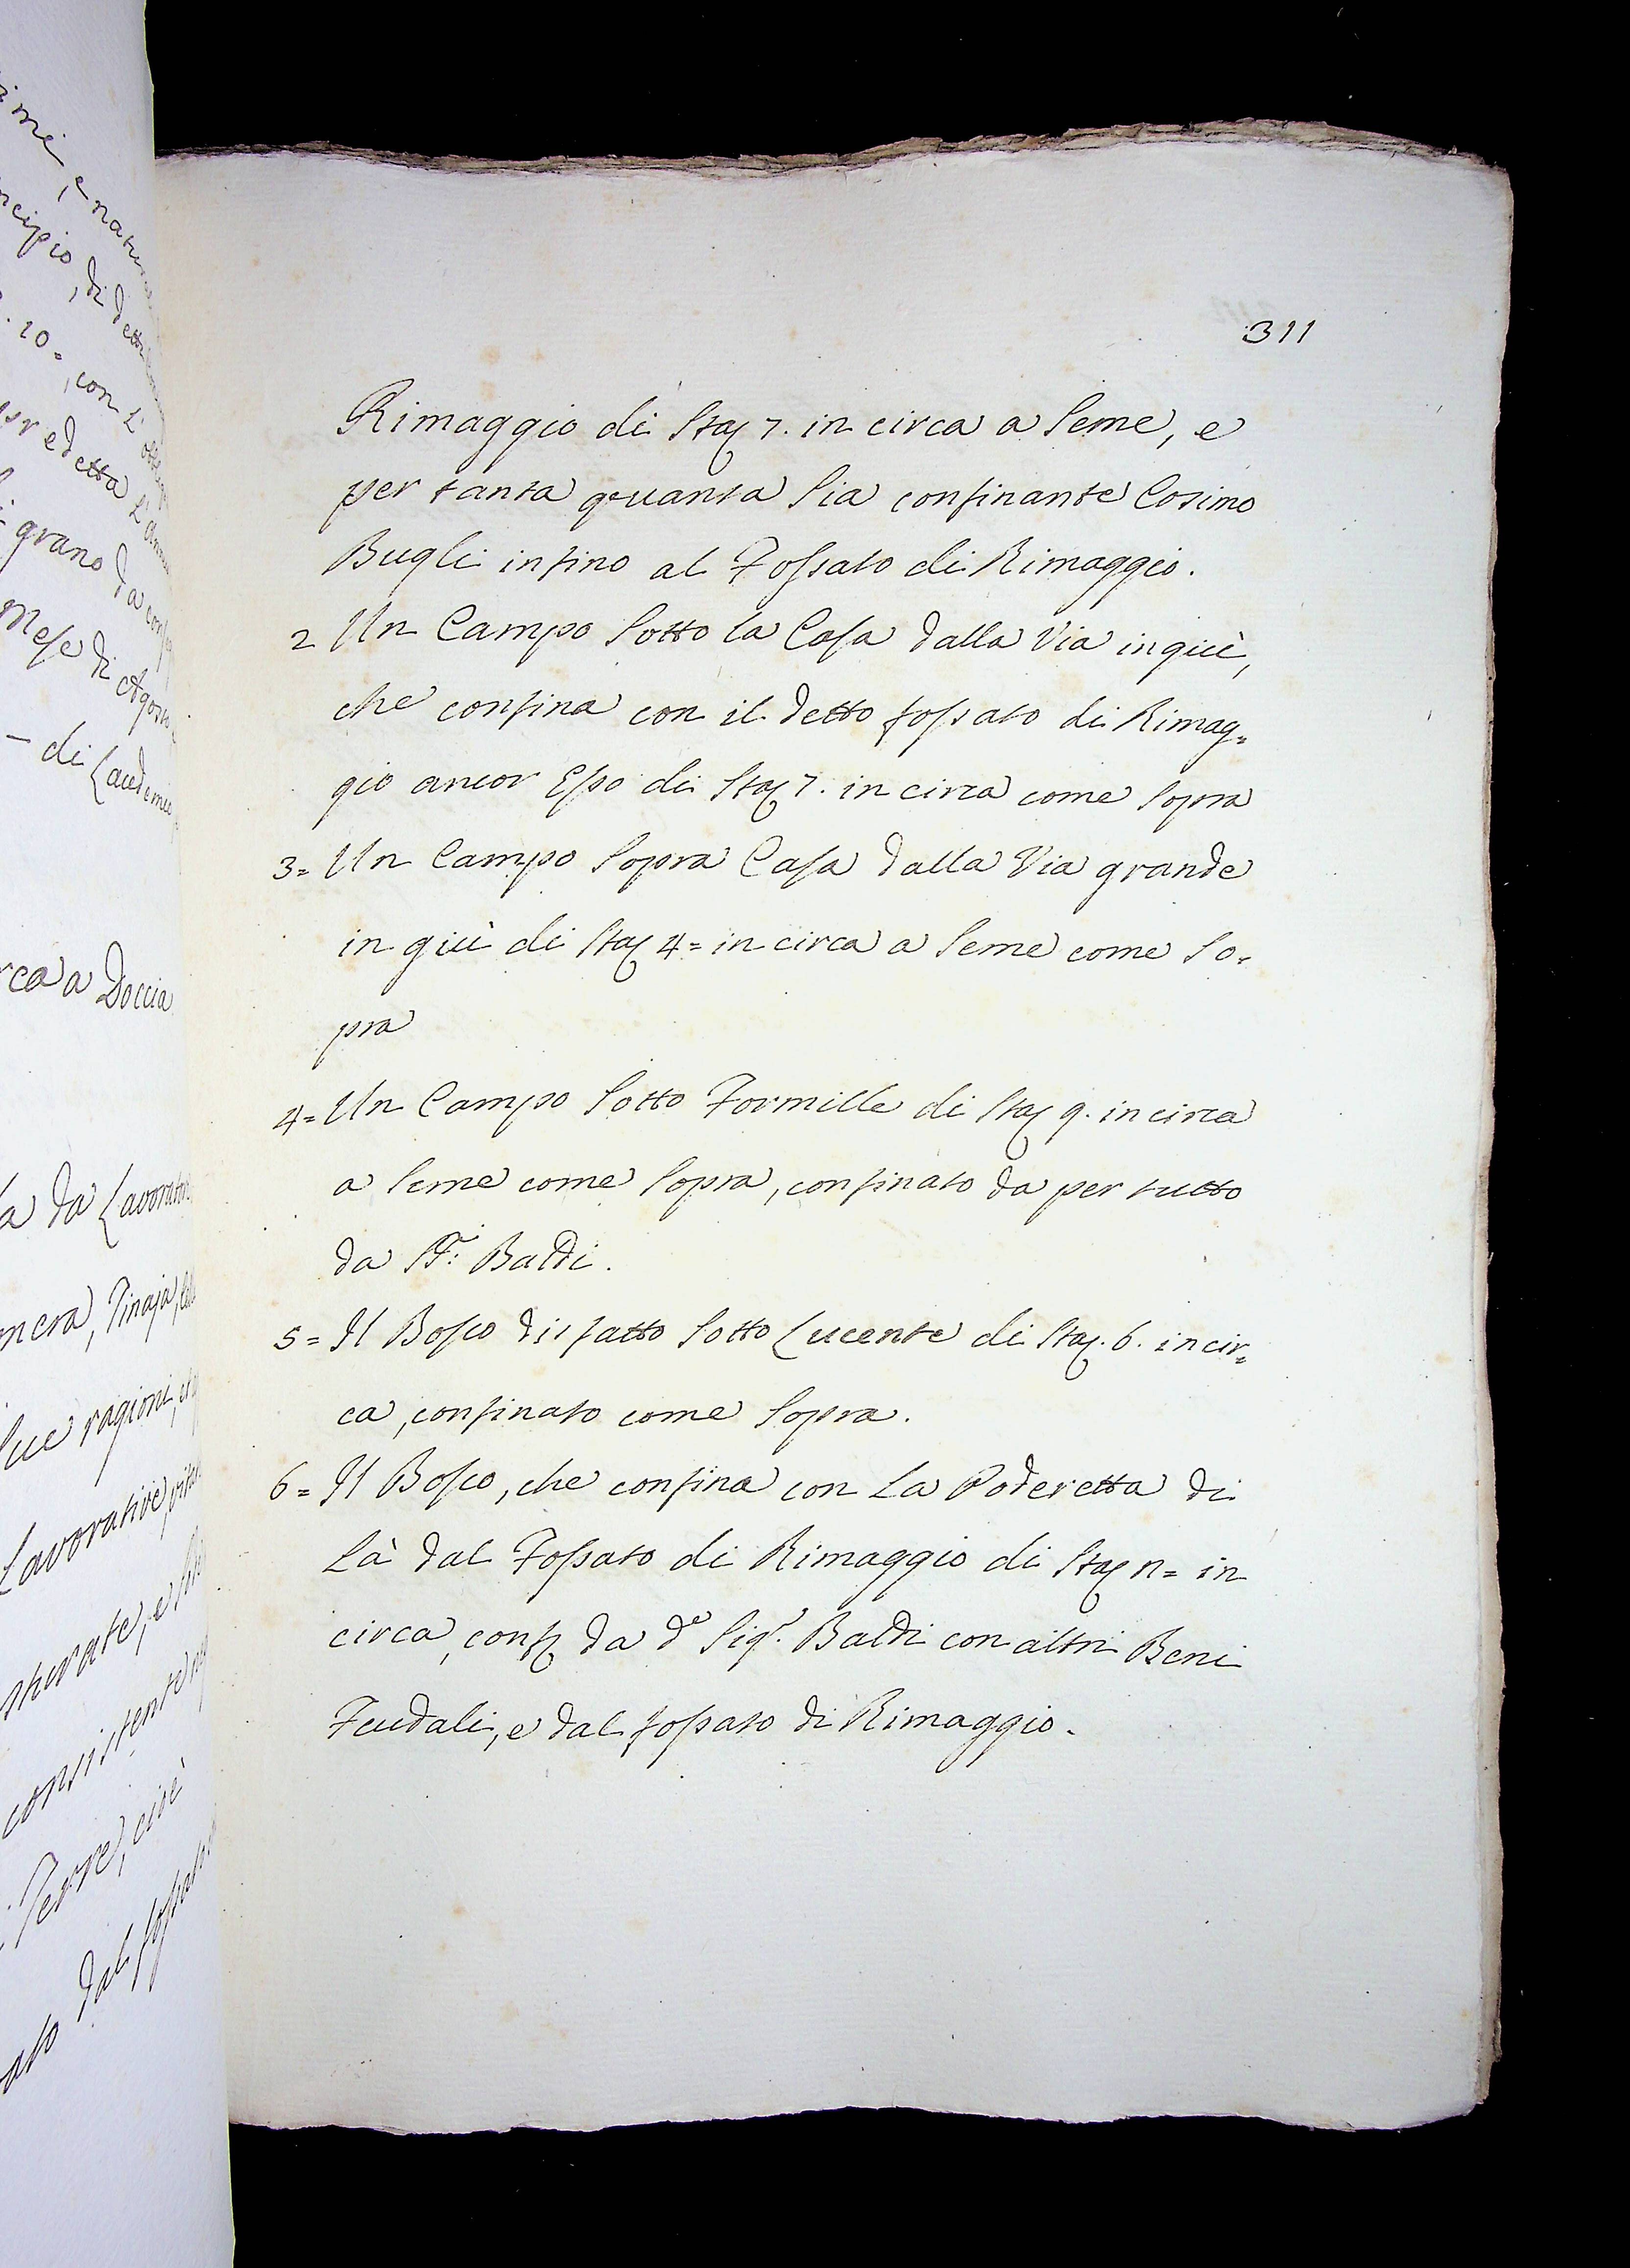 311
Rimaggio di Staj 7. in circa a Seme, e
per tanta quanta Sia confinante Cosimo
Bugli infino al Fossato di Rimaggio.
2 Un Campo Sotto la Casa dalla Via ingiù,
che confina con il detto fossato di Rimag=
gio ancor Esso di Staj 7. in circa come Sopra
3= Un Campo Sopra Casa dalla Via grande
in giù di Staj 4= in circa a Seme come So=
pra
4= Un Campo Sotto Formille di Staj 9. in circa
a Seme come Sopra, confinato da per tutto
da Baldi.
5= Il Bosco disfatto Sotto Lucente di Staj. 6. incir=
ca, confinato come Sopra.
6= Il Bosco, che confina con La Poderetta di
Là dal Fossato di Rimaggio di Staj n= in
circa, conf da d.o Sig.r Baldi con altri Beni
Feudali, e dal fossato di Rimaggio.
grano da
Mese di Agosto
di
rca a Doccia
Tinaja,
Sue ragioni,
Lavorative,
Terre, cioè
dal fossato